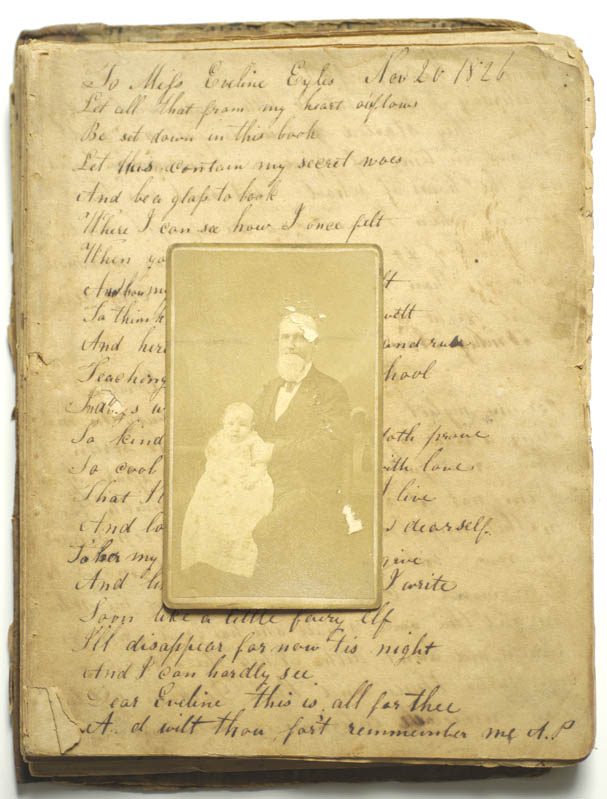 To Miss Eveline Eyles Nov 20 1826
Let all that from my heart oiflows
Be set down in this book
Let this contain my secret woes
And be a glass to look
Where I can see how I once felt
When yo
And how my
To think
And her and rule
Teaching hool
In days w
So kind doth prove
So cool with love
That I I live
And lo s dearself
To her my give
And li I write
Soon like a little fairy elf
I'll disappear for now 'tis night
And I can hardly see
ear Eveline this is all for thee
A d wilt thou for't remmember me A.P